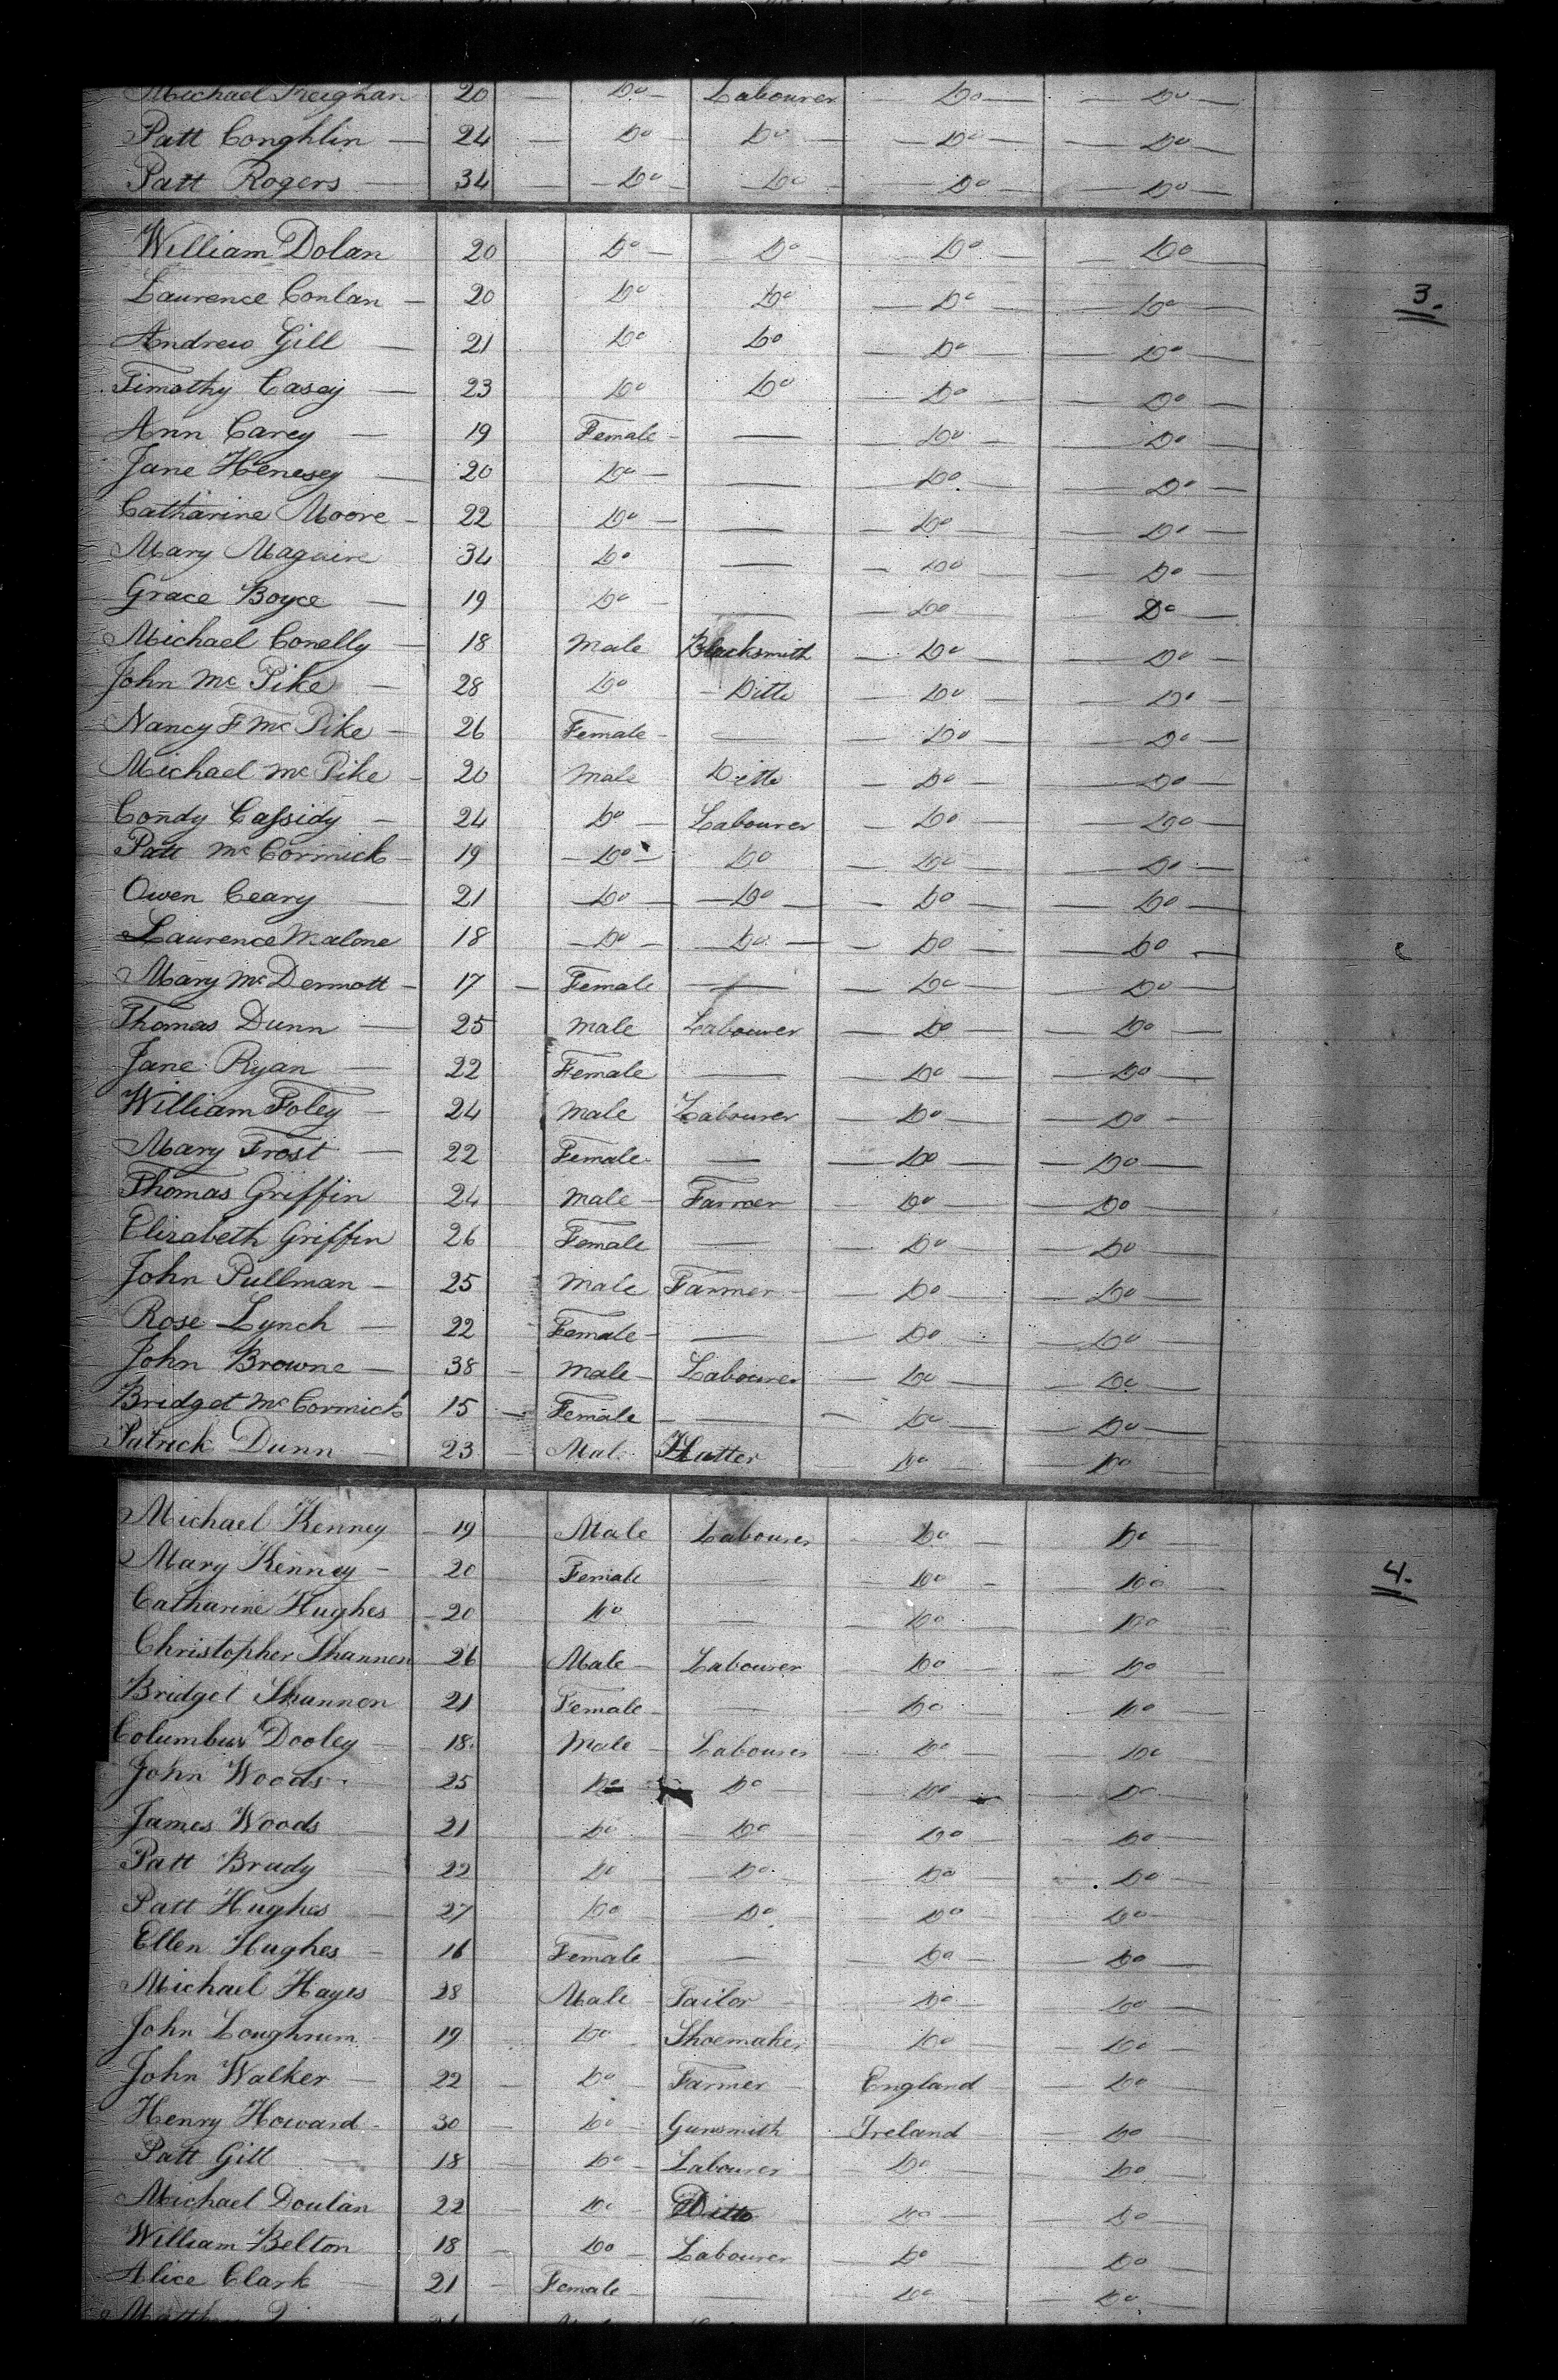 Michael Freighan 20 — Do — Labourer — Do — — Do —
Patt Conghlin — 24 — Do — Do — Do — — Do —
Patt Rogers — 34 — Do — Do — Do — — Do —
William Dolan 20 Do — Do — Do — Do
3.
Laurence Conlan — 20 Do Do — Do — — Do —
Andrew Gill — 21 Do Do — Do — — Do —
Timothy Casey — 23 Do Do — Do — — Do —
Ann Carey — 19 Female — — Do — — Do —
Jane Henesey — 20 Do — — Do — — Do —
Catharine Moore — 22 Do — — — Do — — Do —
Mary Maguire 34 Do — — Do — — Do —
Grace Boyce — 19 Do — — — Do — Do —
Michael Conelly — 18 Male Blacksmith — Do — — Do —
John Mc Pike — 28 Do — Ditto — Do — — Do —
Nancy F Mc Pike — 26 Female — — — Do — — Do —
Michael Mc Pike — 20 Male Ditto — Do — — Do —
Condy Cassidy — 24 Do — Labourer — Do — — Do —
Patt Mc Cormick — 19 — Do — Do — Do — — Do —
Owen Ceary — 21 — Do — — Do — — Do — — Do —
Laurence Malone 18 — Do — — Do — — Do — — Do —
Mary Mc Dermott — 17 — Female — — Do — — Do —
Thomas Dunn — 25 Male Labourer — Do — — Do —
Jane Ryan — 22 Female — — Do — — Do —
William Foley — 24 Male Labourer — Do — — Do —
Mary Frost — 22 Female — — Do — — Do —
Thomas Griffin 24 Male — Farmer — Do — — Do —
Elizabeth Griffin 26 Female — — Do — — Do —
John Pullman — 25 Male Farmer — — Do — — Do —
Rose Lynch — 22 Female — — — Do — — Do —
John Browne — 38 — Male — Labourer — Do — — Do —
Bridget Mc Cormick 15 — Female — — — Do — — Do —
Patrick Dunn — 23 — Mal. Hatter — Do — — Do —
Michael Kenney — 19 Male Labourer — Do — — Do —
Mary Kenney — 20 Female — — Do — — Do —
4.
Catharine Hughes — 20 Do — — Do — — Do —
Christopher Shannon 26 Male — Labourer — Do — — Do —
Bridget Shannon 21 Female — — — Do — — Do —
Columbus Dooley — 18 Male — Labourer — Do — — Do —
John Woods — 25 Do Do — — Do — — Do —
James Woods 21 Do — Do — — Do — — Do —
Patt Brady — 22 Do — Do — — Do — — Do —
Patt Hughes — 27 Do — Do — — Do — — Do —
Ellen Hughes — 16 Female — — Do — — Do —
Michael Hayes 28 Male — Tailor — — Do — — Do —
John Loughrum 19 Do — Shoemaker — Do — — Do —
John Walker — 22 — Do — Farmer — England — Do —
Henry Howard — 30 — Do — Gunsmith Ireland — Do —
Patt Gill — 18 — Do — Labourer — Do — — Do —
Michael Doulan 22 — Do — Ditto — Do — — Do —
William Belton 18 — Do — Labourer — Do — — Do —
Alice Clark — 21 — Female — — — Do — — Do —